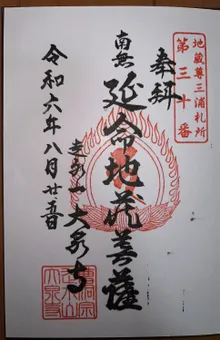 地蔵尊三浦札所
第三十番
奉拝
南無
延命地蔵菩薩
大泉寺
令和六年八月廿五日